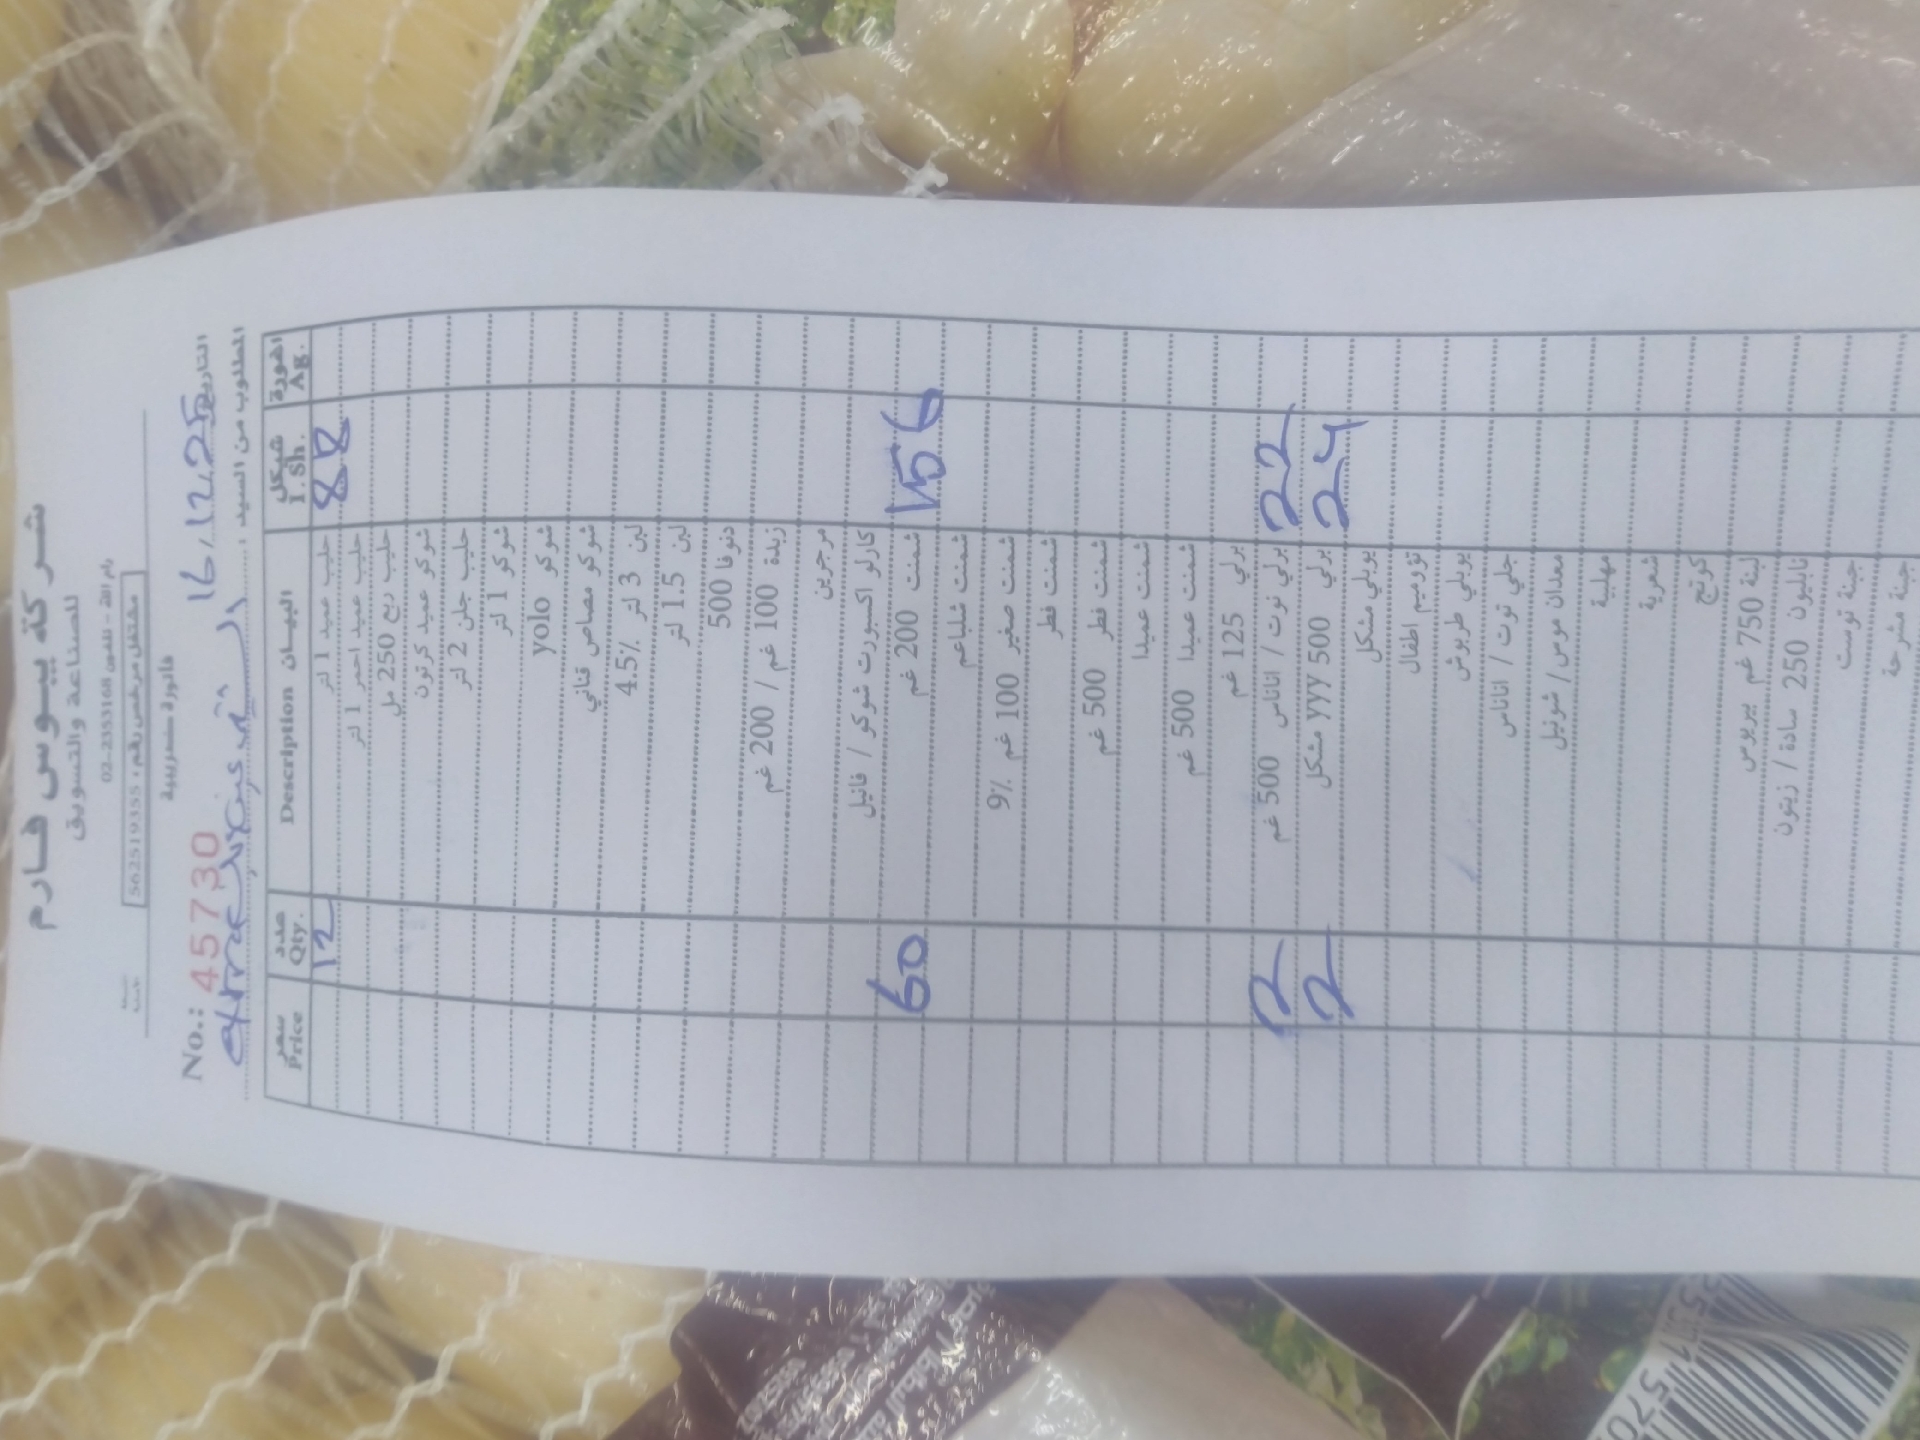 شركة بيوس فارم
للصناعة والتسويق
رام الله - تلفون 2353168-02
مشتغل مرخص رقم: 562519355
فاتورة ضريبية
No.: 45730 التاريخ 16.12.25
المطلوب من السيد:
سعر عدد البيان شيكل اغورة
Price Qty. Description I.Sh. Ag.
12 حليب عميد 1 لتر 88
حليب عميد احمر 1 لتر
حليب ربع 250 مل
شوكو عميد كرتون
حليب جلن 2 لتر
شوكو 1 لتر
yolo شوكو
شوكو مصاص قناني
لبن 3 لتر 4.5%
لبن 1.5 لتر
دنوفا 500
زبدة 100 غم / 200 غم
مرجرين
كارلو اكسبورت شوكو / فانيل
60 شمنت 200 غم 156
شمنت شلباعم
شمنت صغير 100 غم 9%
شمنت فطر
شمنت فطر 500 غم
شمنت عميدا
شمنت عميدا 500 غم
برلي 125 غم
2 برلي توت / اناناس 500 غم 22
2 برلي 500 yyy مشكل 24
يوبلي مشكل
توويم اطفال
يوبلي طربوش
جلي توت / اناناس
معدان موس / شونيل
مهلبية
شعرية
كوتج
لبنة 750 غم بيربوس
نابليون 250 سادة / زيتون
جبنة توست
جبنة مشرحة